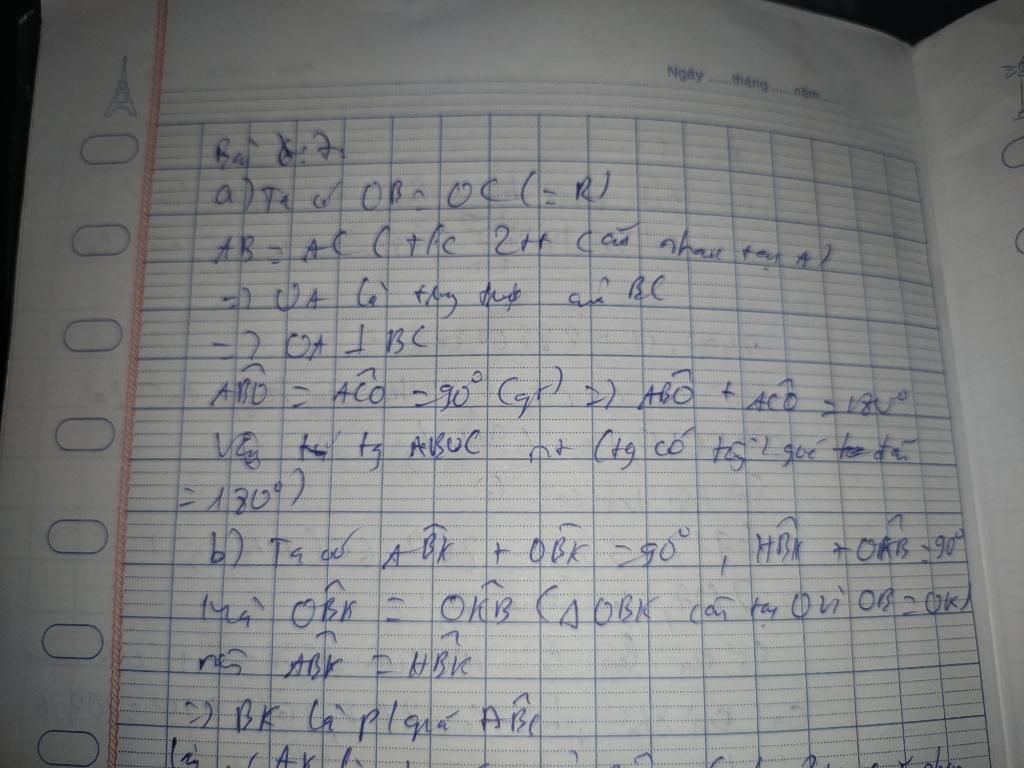 Ngày ......tháng ......năm......
Bài 7.
a) Ta có OB = OC (= R)
AB = AC ( t/c 2tt cắt nhau tại A)
=> OA là của BC
=> OA ⊥ BC
ABÔ = AĈO = 90° (gt) => ABÔ + AĈO = 180°
Vậy tg ABOC nt (tg có tổng 2 góc đối
= 180°)
b) Ta có AB̂K + OB̂K = 90° ; HB̂K + OK̂B = 90°
Mà OB̂K = OK̂B (ΔOBK cân tại O vì OB = OK)
nên AB̂K = HB̂K
=> BK là p/giác AB̂C